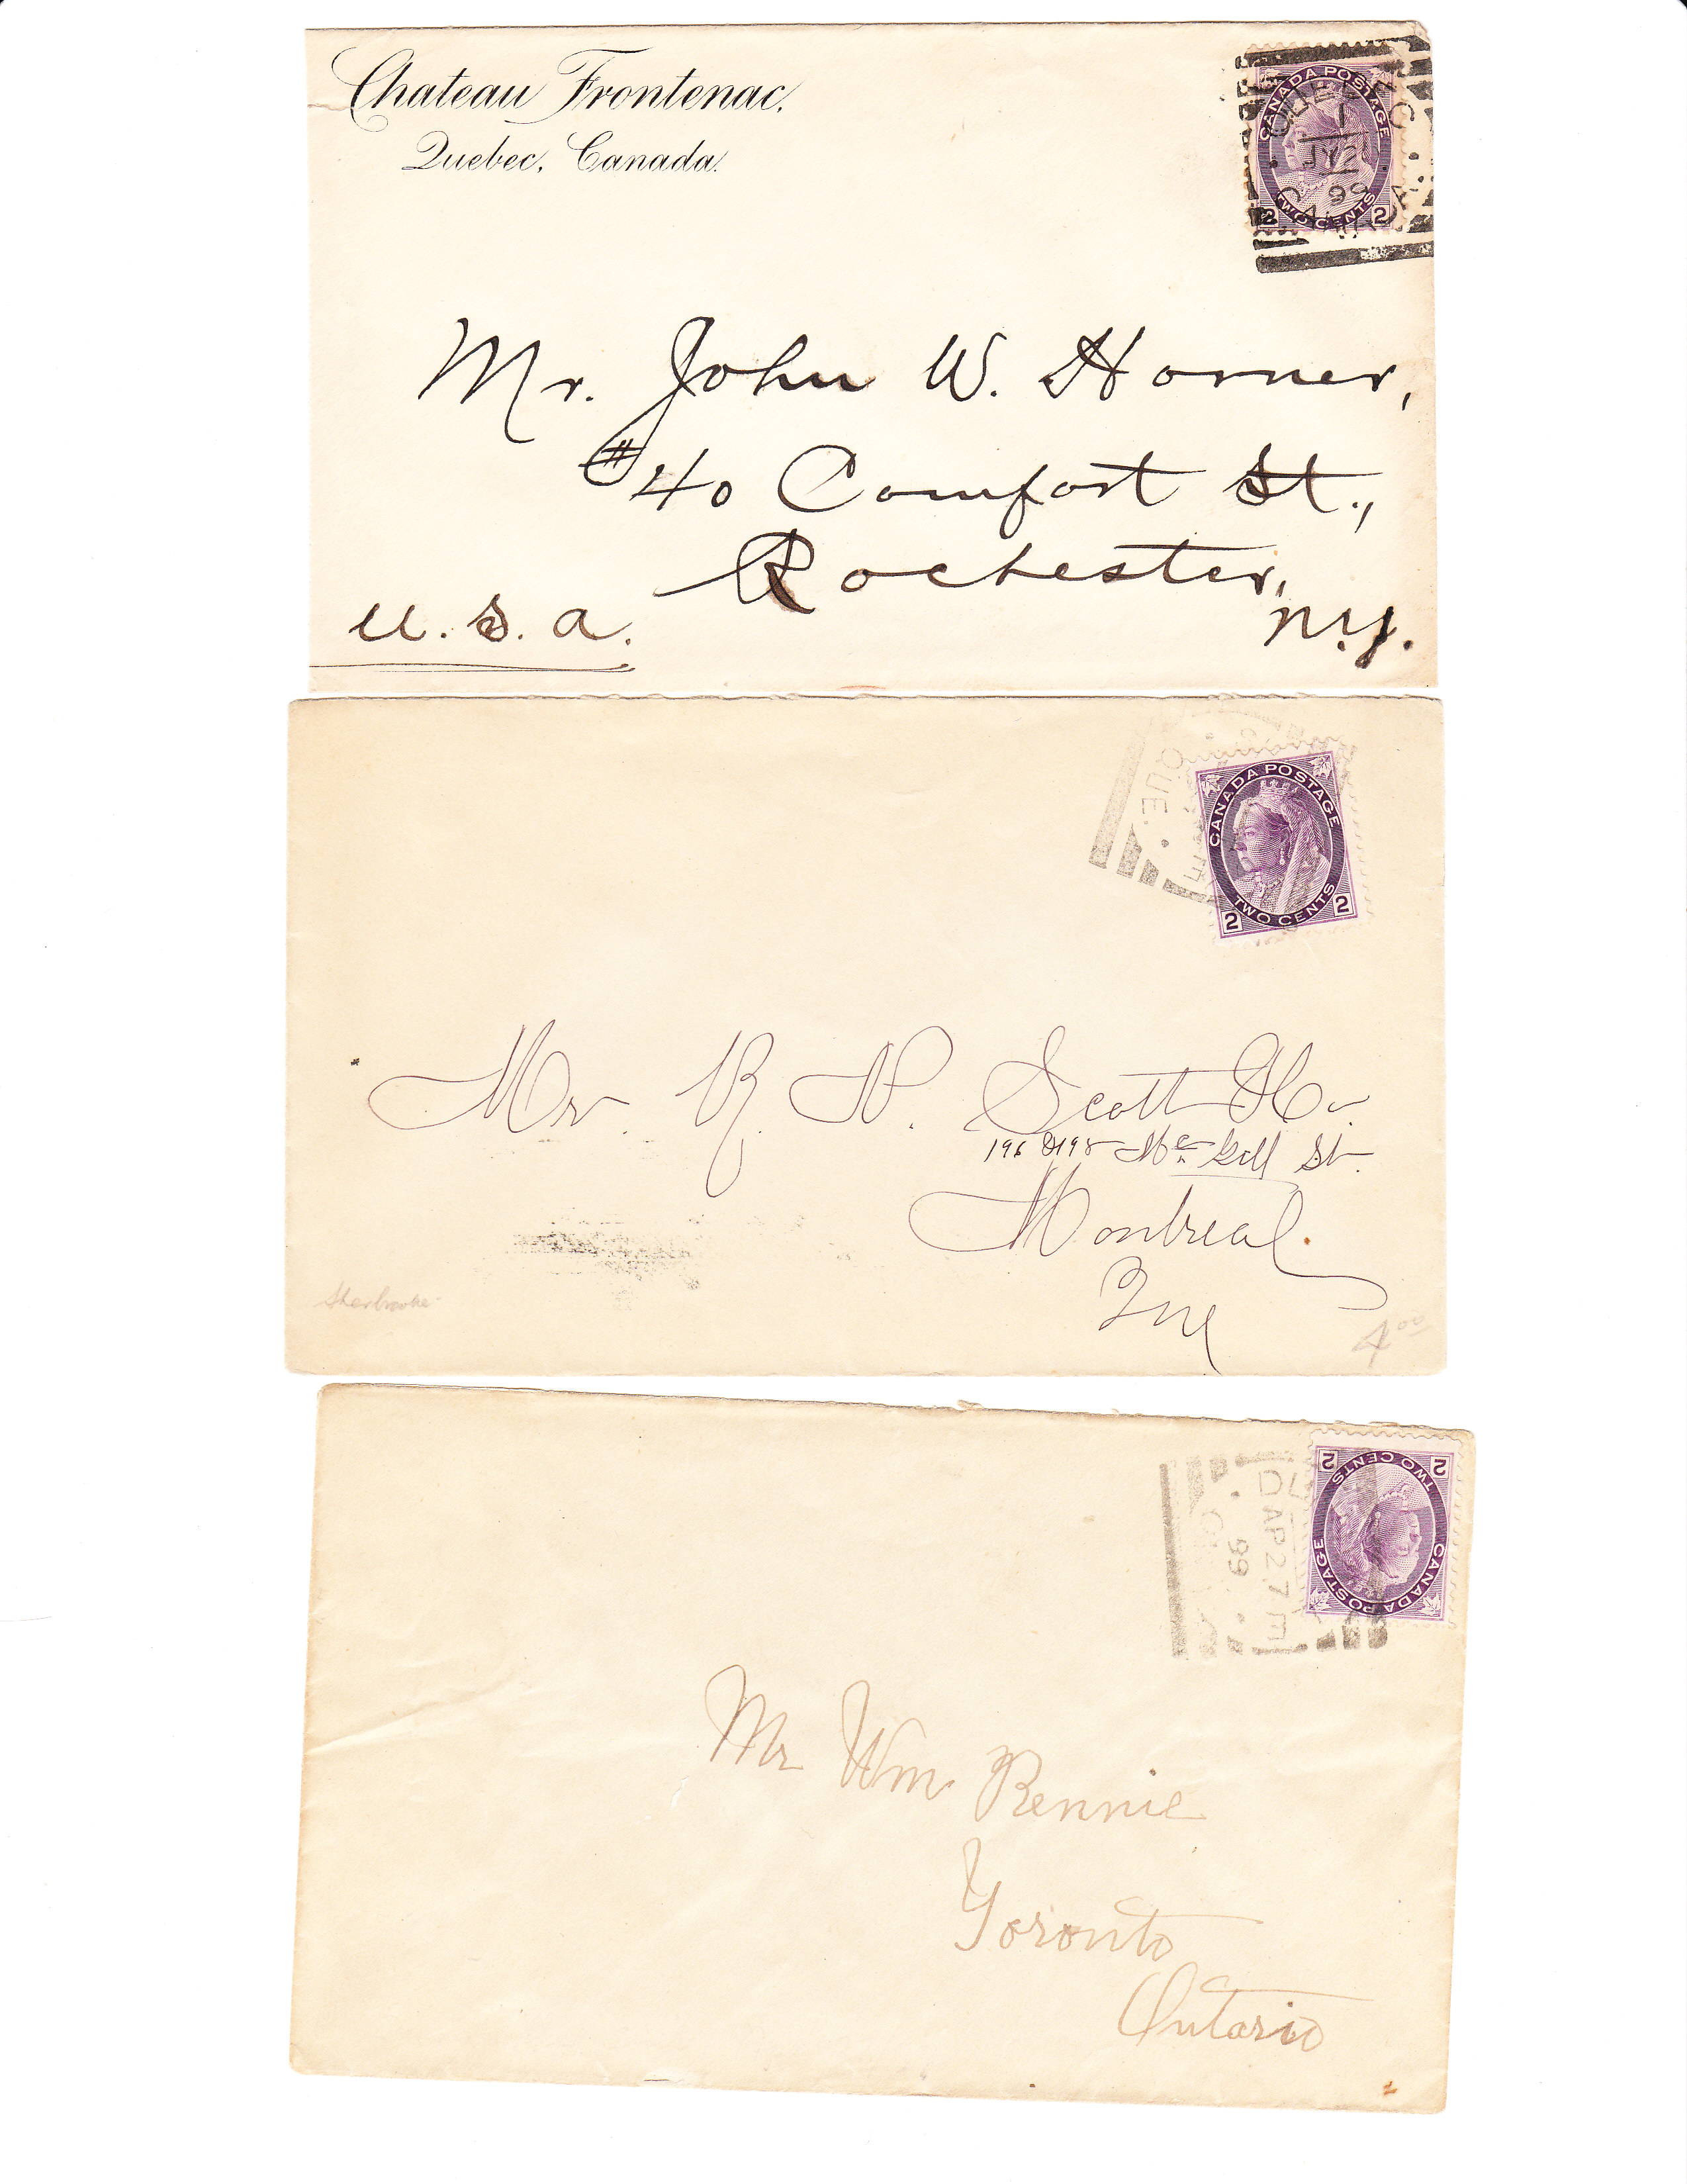 Chateau Frontenac,
Quebec, Canada.
CANADA POSTAGE
QUEBEC
1
JY 2
99
CANADA
TWO CENTS
2 2
Mr. John W. Horner,
#40 Comfort St.,
Rochester,
N.Y.
U.S.A.
QUE.
CANADA POSTAGE
TWO CENTS
2 2
Mr. R. N. Scott
196 & 198 McGill St.
Montreal.
Que
Sherbrooke
4 00
2 2
TWO CENTS
CANADA POSTAGE
AP 27
99
Mr Wm Rennie
Toronto
Ontario